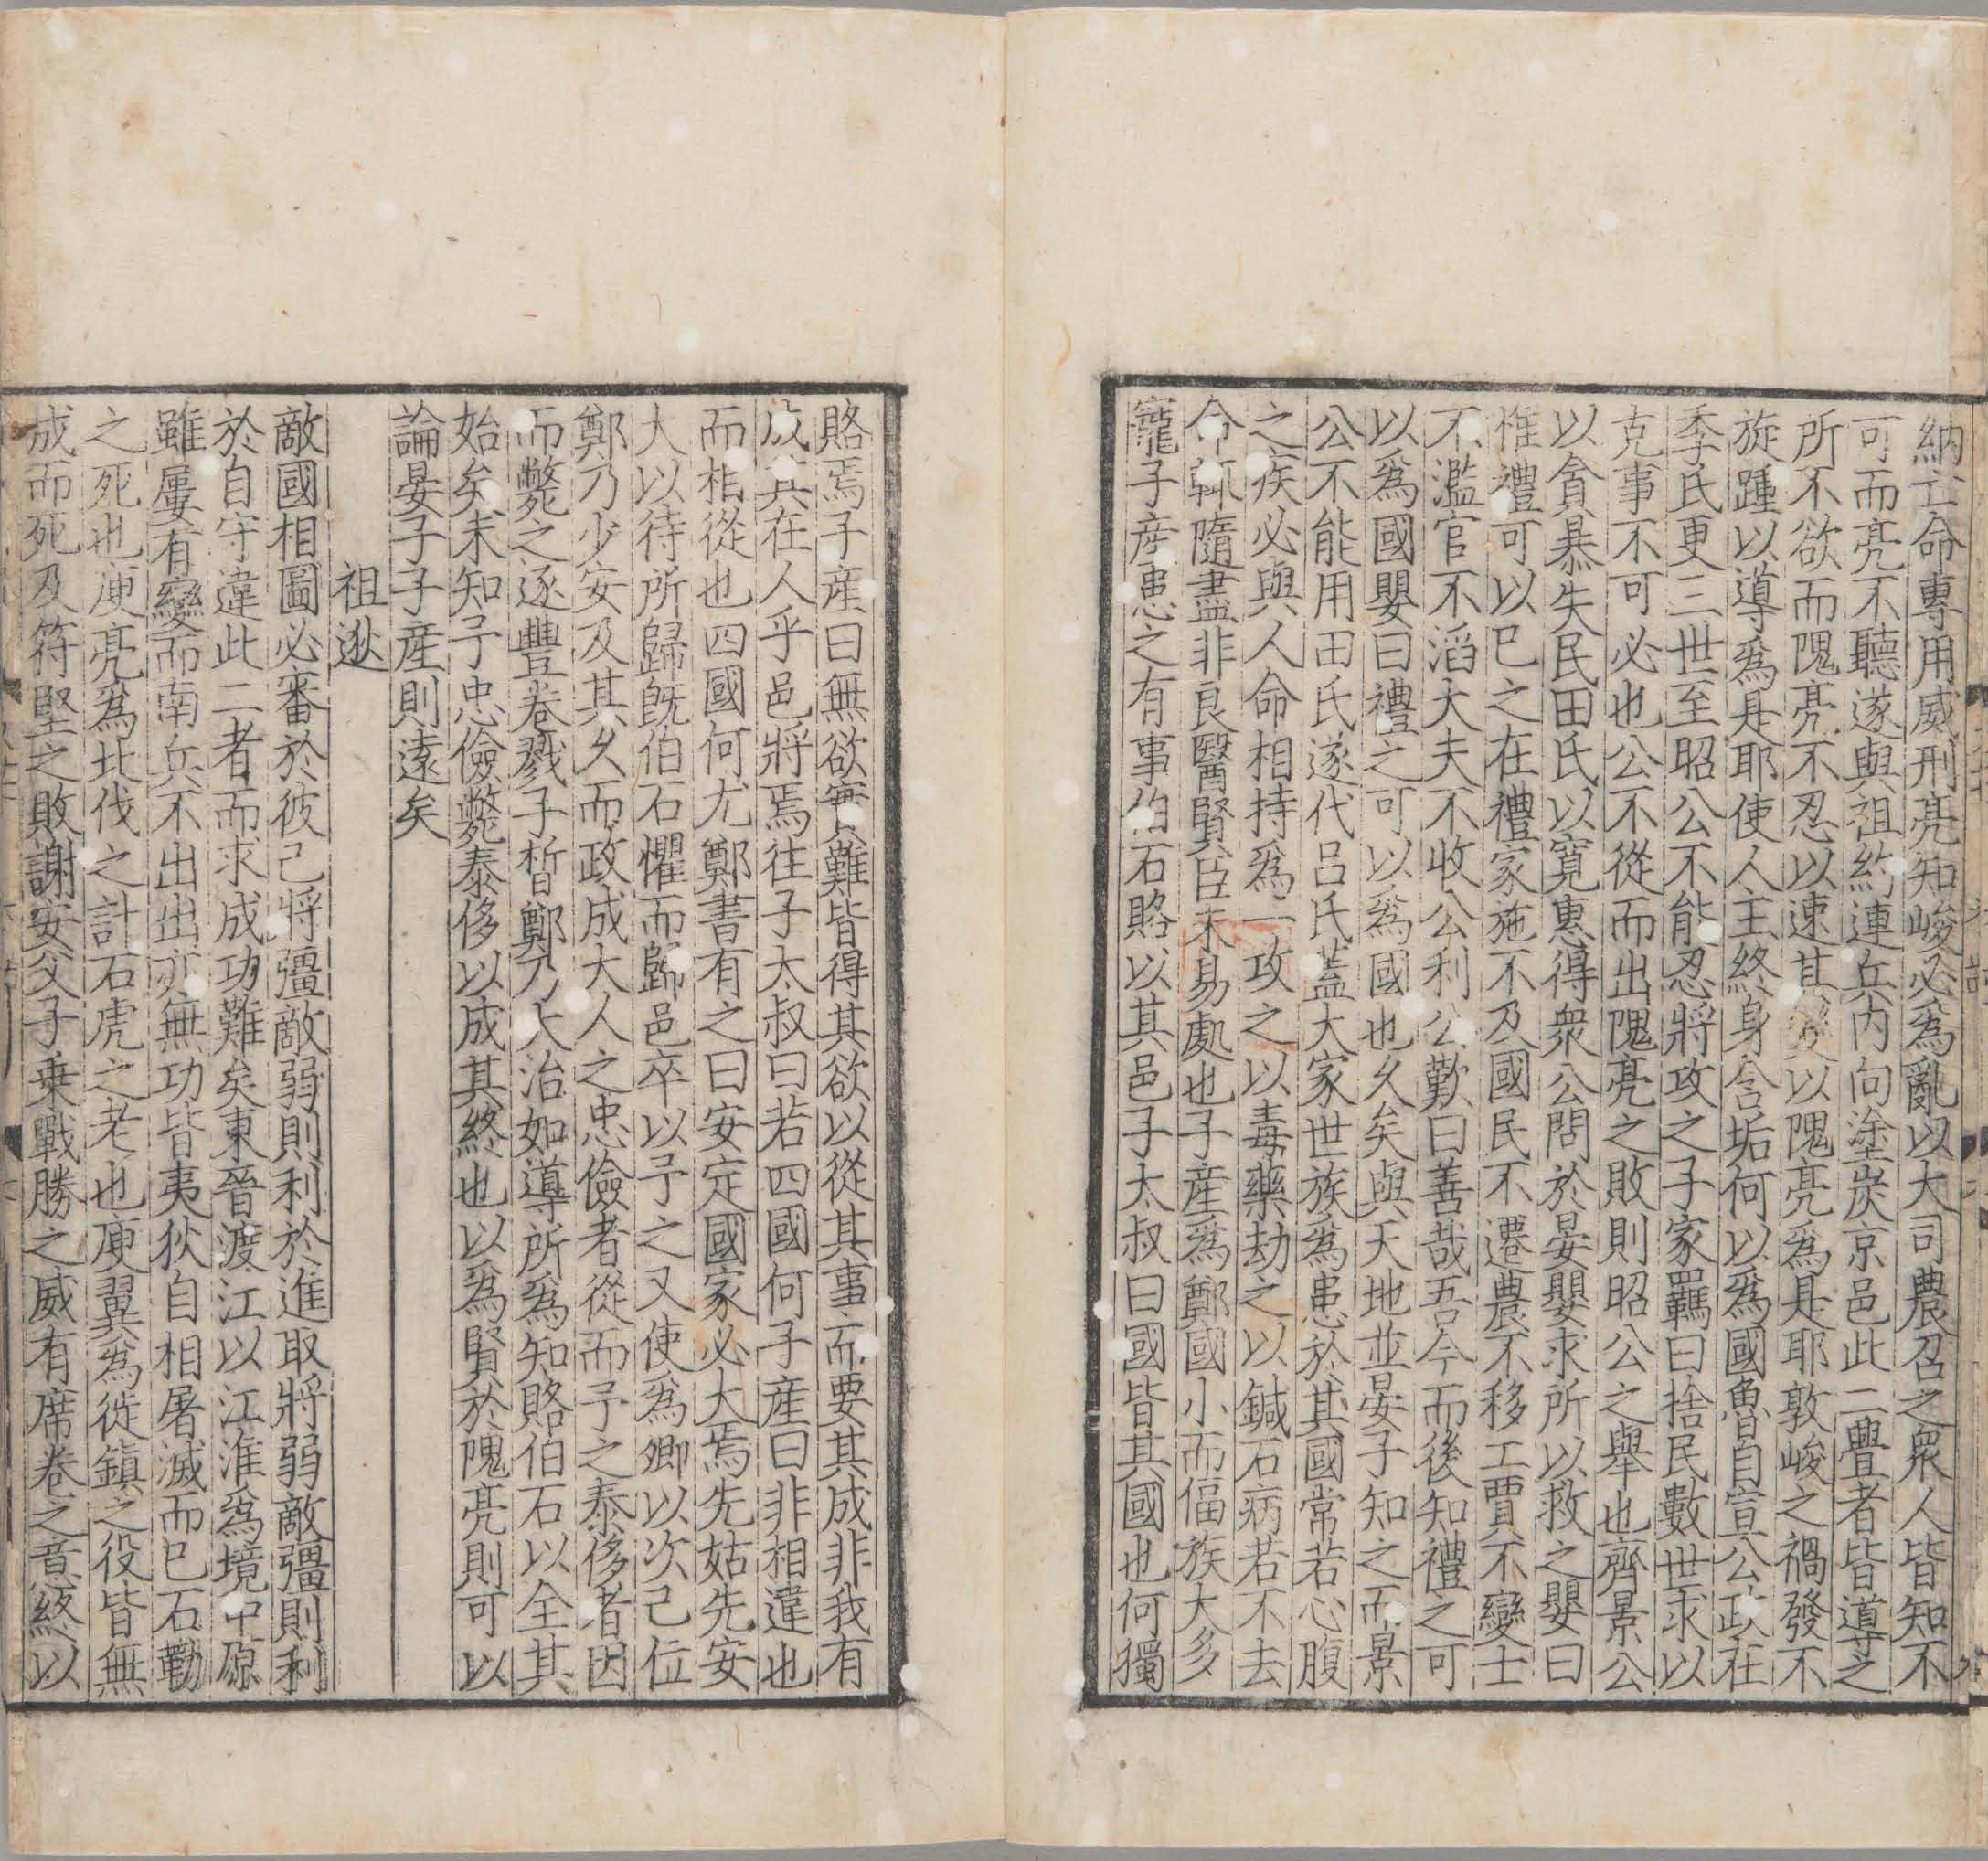 納亡命專用威刑亮知峻必爲亂以大司農召之衆人皆知不
可而亮不聽遂與祖約連兵内向塗炭京邑此二舋者皆導之
所不欲而隗亮不忍以速其變以隗亮爲是耶敦峻之禍發不
旋踵以導爲是耶使人主終身含垢何以爲國魯自宣公政在
季氏更三世至昭公不能忍將攻之子家羈曰捨民數世求以
克事不可必也公不從而出隗亮之敗則昭公之舉也齊景公
以貪暴失民田氏以寬惠得衆公問於晏嬰求所以救之嬰曰
惟禮可以已之在禮家施不及國民不遷農不移工賈不變士
不濫官不滔大夫不收公利公歎曰善哉吾今而後知禮之可
以爲國嬰曰禮之可以爲國也久矣與天地並晏子知之而景
公不能用田氏遂代吕氏蓋大家世族爲患於其國常若心腹
之疾必與人命相持爲一攻之以毒藥劫之以鍼石病若不去
命輒隨盡非良醫賢臣未易處也子産爲鄭國小而偪族大多
寵子産患之有事伯石賂以其邑子太叔曰國皆其國也何獨
賂焉子産曰無欲實難皆得其欲以從其事而要其成非我有
成其在人乎邑將焉往子太叔曰若四國何子産曰非相違也
而相從也四國何尤鄭書有之曰安定國家必大焉先姑先安
大以待所歸旣伯石懼而歸邑卒以予之又使爲卿以次己位
鄭乃少安及其久而政成大人之忠儉者從而予之泰侈者因
而斃之逐豐卷戮子晳鄭乃大治如導所爲知賂伯石以全其
始矣未知予忠儉斃泰侈以成其終也以爲賢於隗亮則可以
論晏子子産則遠矣
祖逖
敵國相圖必審於彼己將彊敵弱則利於進取將弱敵彊則利
於自守違此二者而求成功難矣東晉渡江以江淮爲境中原
雖屢有變而南兵不出出亦無功皆夷狄自相屠滅而已石勒
之死也庾亮爲北伐之計石虎之老也庾翼爲徙鎮之役皆無
成而死及苻堅之敗謝安父子乗戰勝之威有席卷之意終以